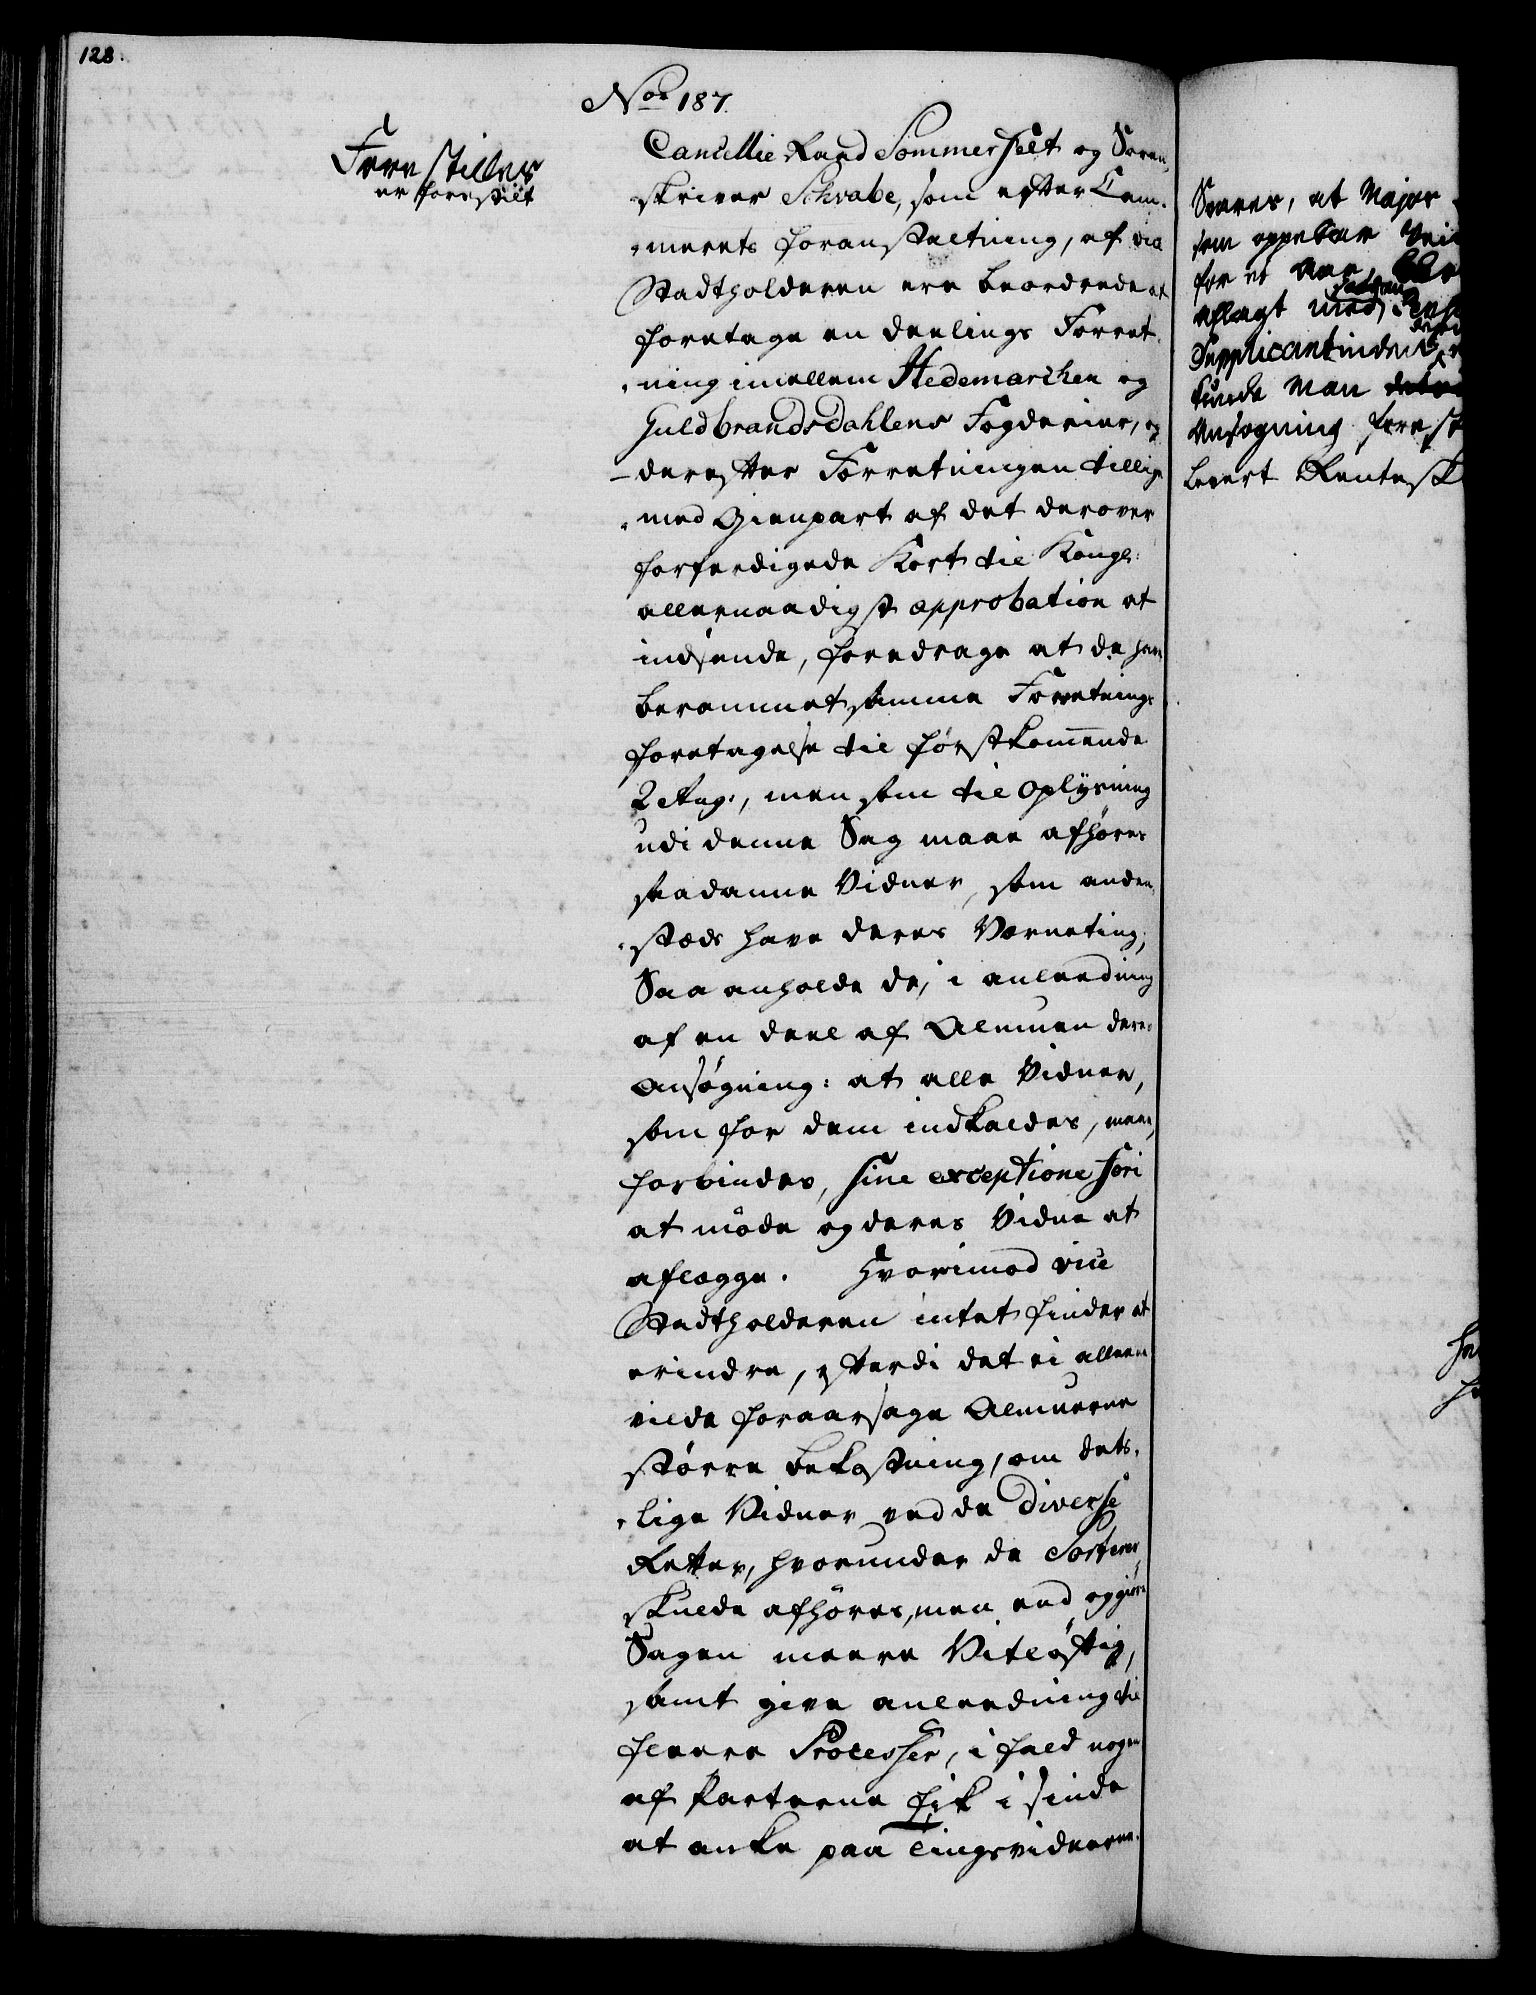 128.
Nor 187.
Forestilles
er forestilt
Cancellie Raad Sommerfelt og Soren-
skriver Schvabe, som efter Cam-
merets foranstaltning, af vice
Stadtholderen ere beordrede at
foretage en deelings Forret-
ning imellem Hedemarchen og
Guldbrandsdahlens Fogderier, og
derefter Forretningen tillige
med Gienpart af det derover
forferdigede Kort til Kongl:
allernaadigst approbation at
indsende, foredrage at de have
berammet samme Forretnings
foretagelse til førstkommende
2 Aug:, men som til Oplysning
udi denne Sag maae afhøres
saadanne Vidner, som anden-
stæds have deres Verneting;
Saa anholde de, i anleedning
af en deel af Almuen deres
Ansøgning: at alle Vidner,
som for dem indkaldes, maae
forbindes, sine exceptione fori
at møde og deres Vidne at
aflægge. Hvorimod vice
Stadtholderen intet finder at
erindre, efterdi det ei alleene
vilde foraarsage Almuerne
større bekostning, om dets-
lige Vidner ved de diverse
Retter, hvorunder de Sortere,
skulde afhøres, men end og giøre
Sagen meere Vitløftig,
samt give anleedning til
fleere Processer, i fald nogen
af Parterne fik i sinde
at anke paa Tingsvidnerne.
Svares, at Major
som oppebar
for et Aar,
aflagt med
Supplicantinden
kunde Man
Ansøgning
levert Rentesk